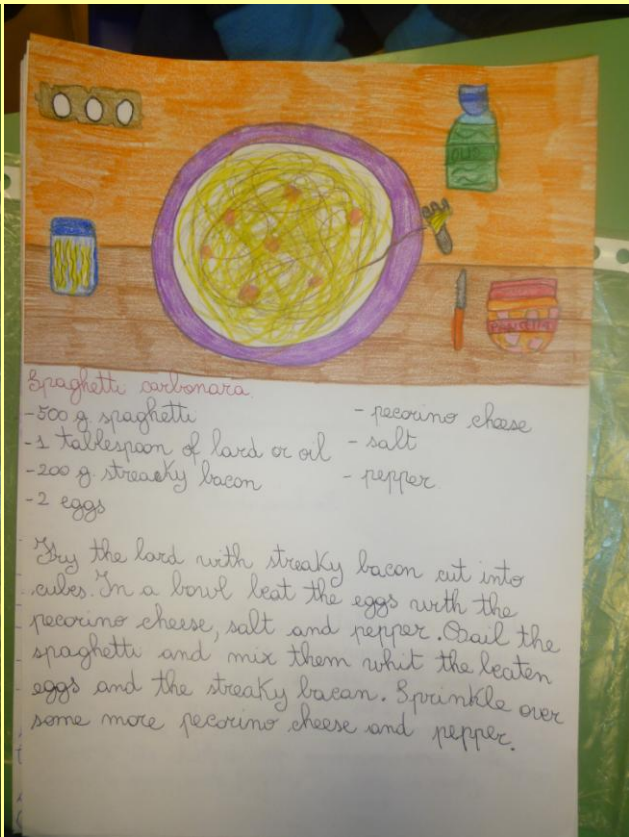 OLIO
PANCETTA
Spaghetti carbonara
-500 g. spaghetti
-1 tablespoon of lard or oil
-200 g. streacky bacon
-2 eggs
- pecorino cheese
- salt
- pepper
Fry the lard with streaky bacon cut into
cubes. In a bowl beat the eggs with the
pecorino cheese, salt and pepper. Boil the
spaghetti and mix them whit the beaten
eggs and the streaky bacan. Sprinkle over
some more pecorino cheese and pepper.